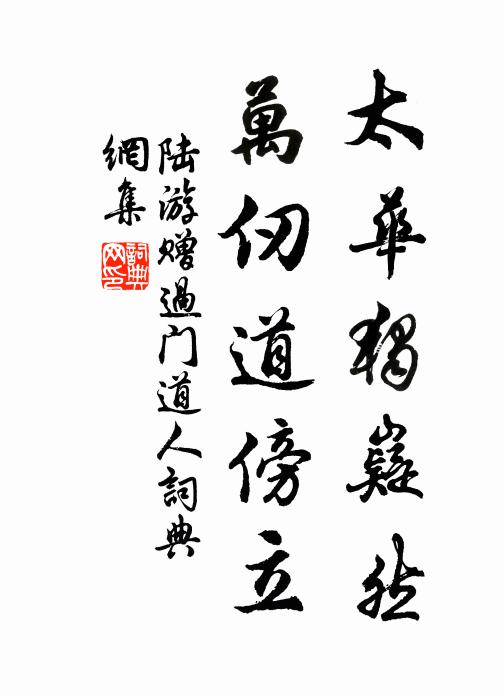 太華獨嶷然
萬仞道傍立
陸游贈過门道人詞典
網集
詞典
网印